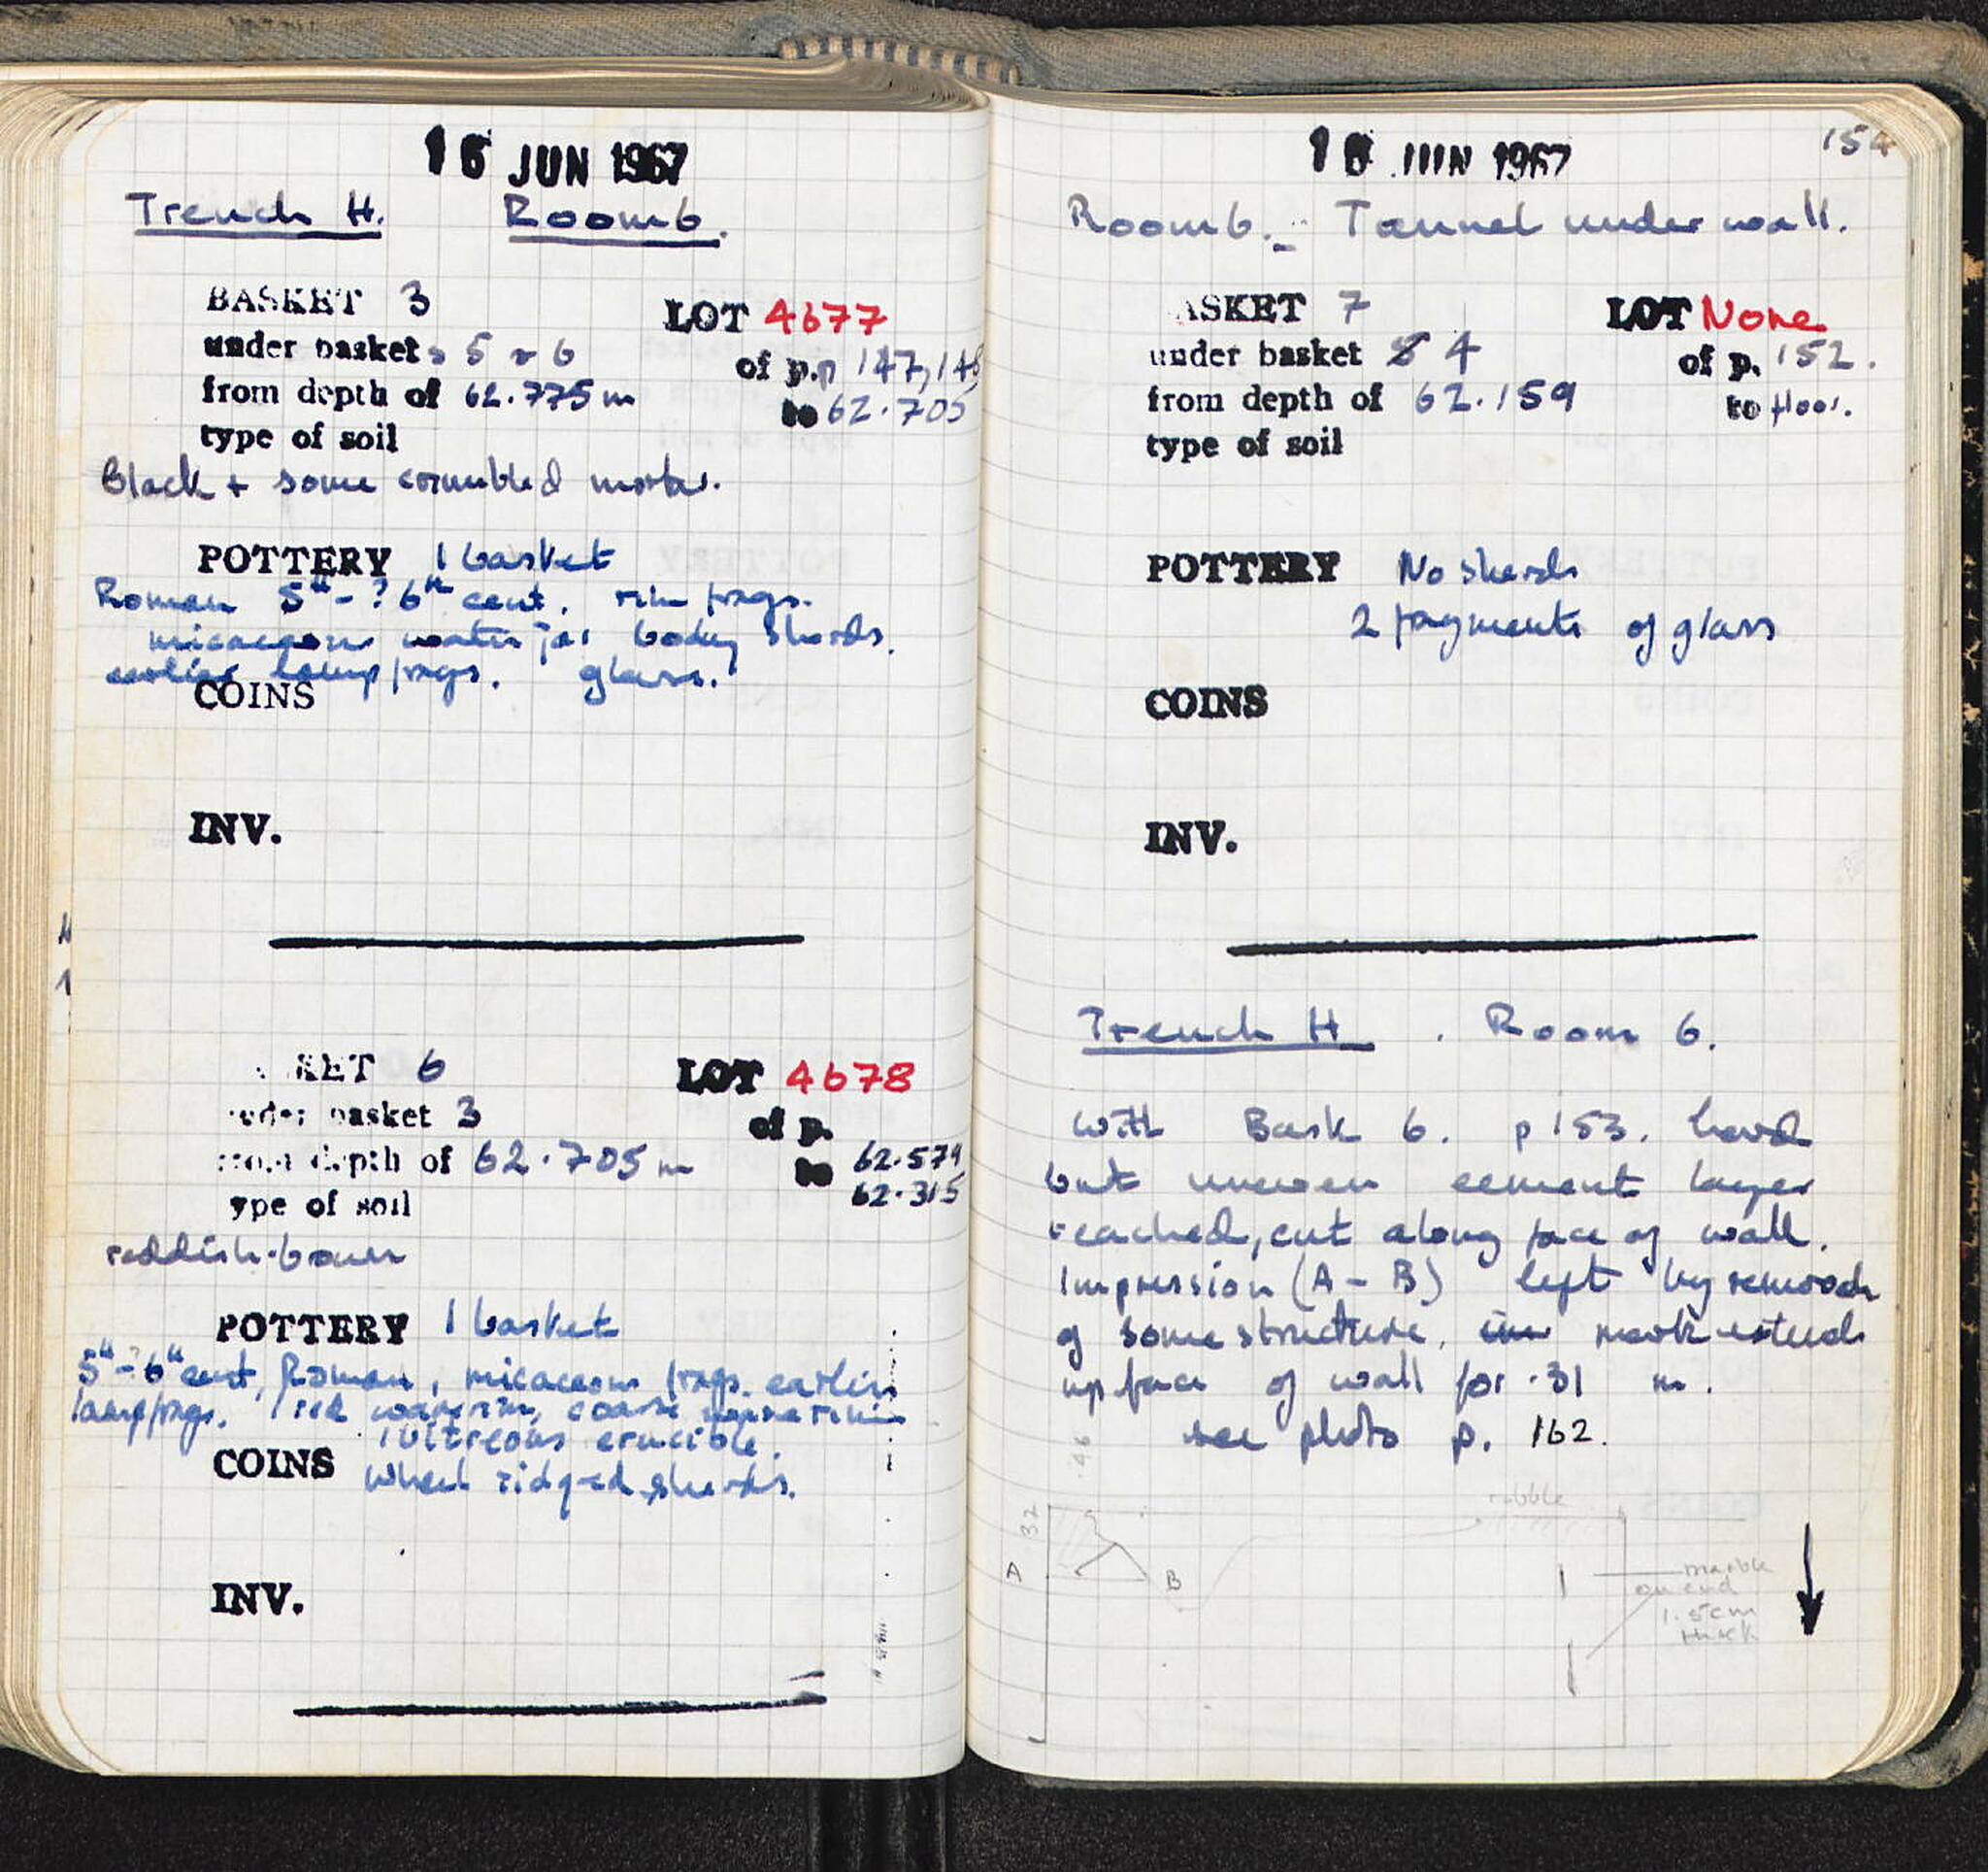 16 JUN 1967
Trench H. Room 6.
BASKET 3 LOT 4677
under baskets 5 + 6 of p.p 147, 148
from depth of 62.775 m to 62.705
type of soil
Black + some crumbled mortar.
POTTERY 1 basket
Roman 5th - ? 6th cent. rim frags.
micaceous water jar body sherds.
earlier lamp frags. glass.
COINS
INV.
KET 6 LOT 4678
under basket 3 of p.
from depth of 62.705 m to 62.579
62.315
ype of soil
reddish-brown
POTTERY 1 basket
5th - ? 6th cent, Roman, micaceous frags. earlier
lamp frags. 1 red ware rim, coarse ware rim
1 vitreous crucible.
COINS wheel ridged sherds.
INV.
154
JUN 1967
Room 6. - Tunnel under wall.
ASKET 7 LOT None
under basket 4 of p. 152.
from depth of 62.159 to floor.
type of soil
POTTERY No sherds
2 fragments of glass
COINS
INV.
Trench H. Room 6.
With Bask 6. p 153. hard
but uneven cement layer
reached, cut along face of wall.
Impression (A - B) left by removal
of some structure. mark extends
up face of wall for .31 m.
see photo p. 162.
.46
rubble
32
A
B
marble
on end
1.5cm
thick